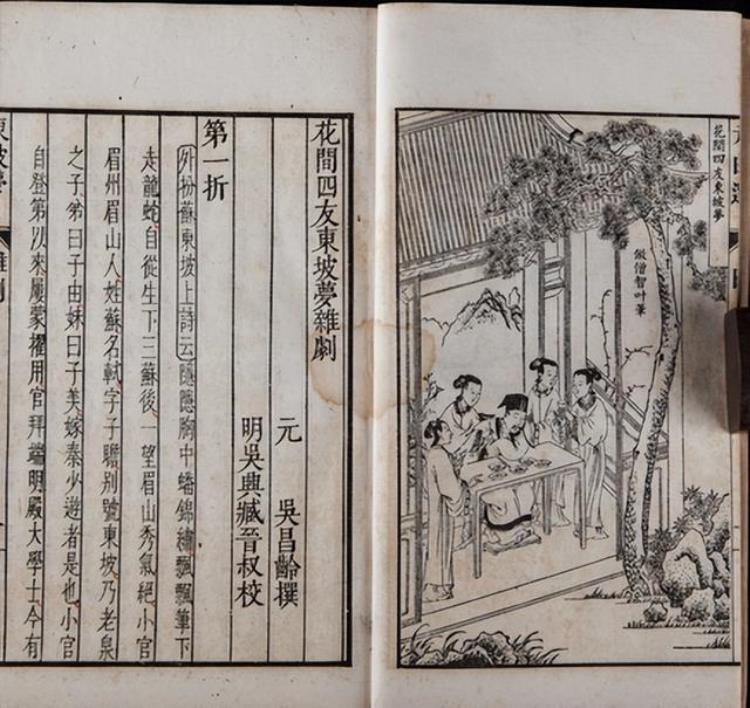 花間四友東坡夢
倣僧智叶筆
花間四友東坡夢雜劇
元 吳昌齡撰
明吳興臧晉叔校
第一折
外扮蘇東坡上詩云隱隱胸中蟠錦繡飄飄筆下
走龍蛇自從生下三蘇後一望眉山秀氣絕小官
眉州眉山人姓蘇名軾字子瞻別號東坡乃老泉
之子弟曰子由妹曰子美嫁秦少遊者是也小官
自登第以來屢蒙擢用官拜端明殿大學士今有
東坡夢
雜劇